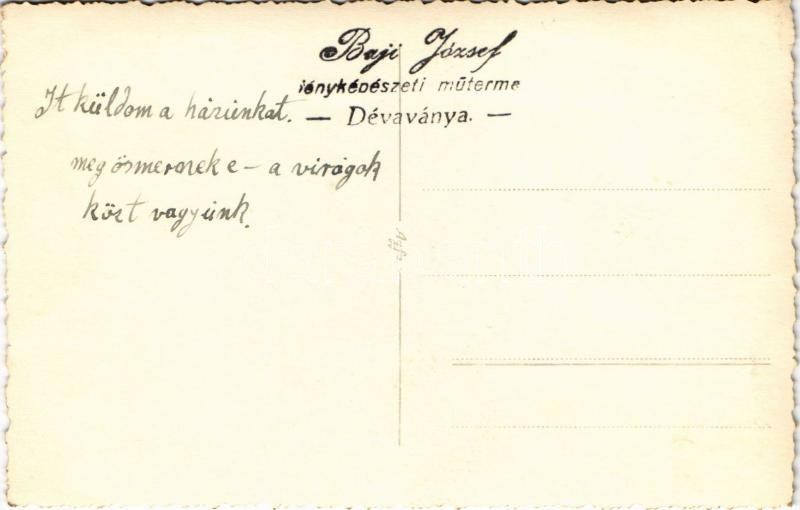 Baji József
fényképészeti műterme
— Dévaványa. —
It küldom a házünkat.
meg ösmernek e – a virágok
közt vagyünk.